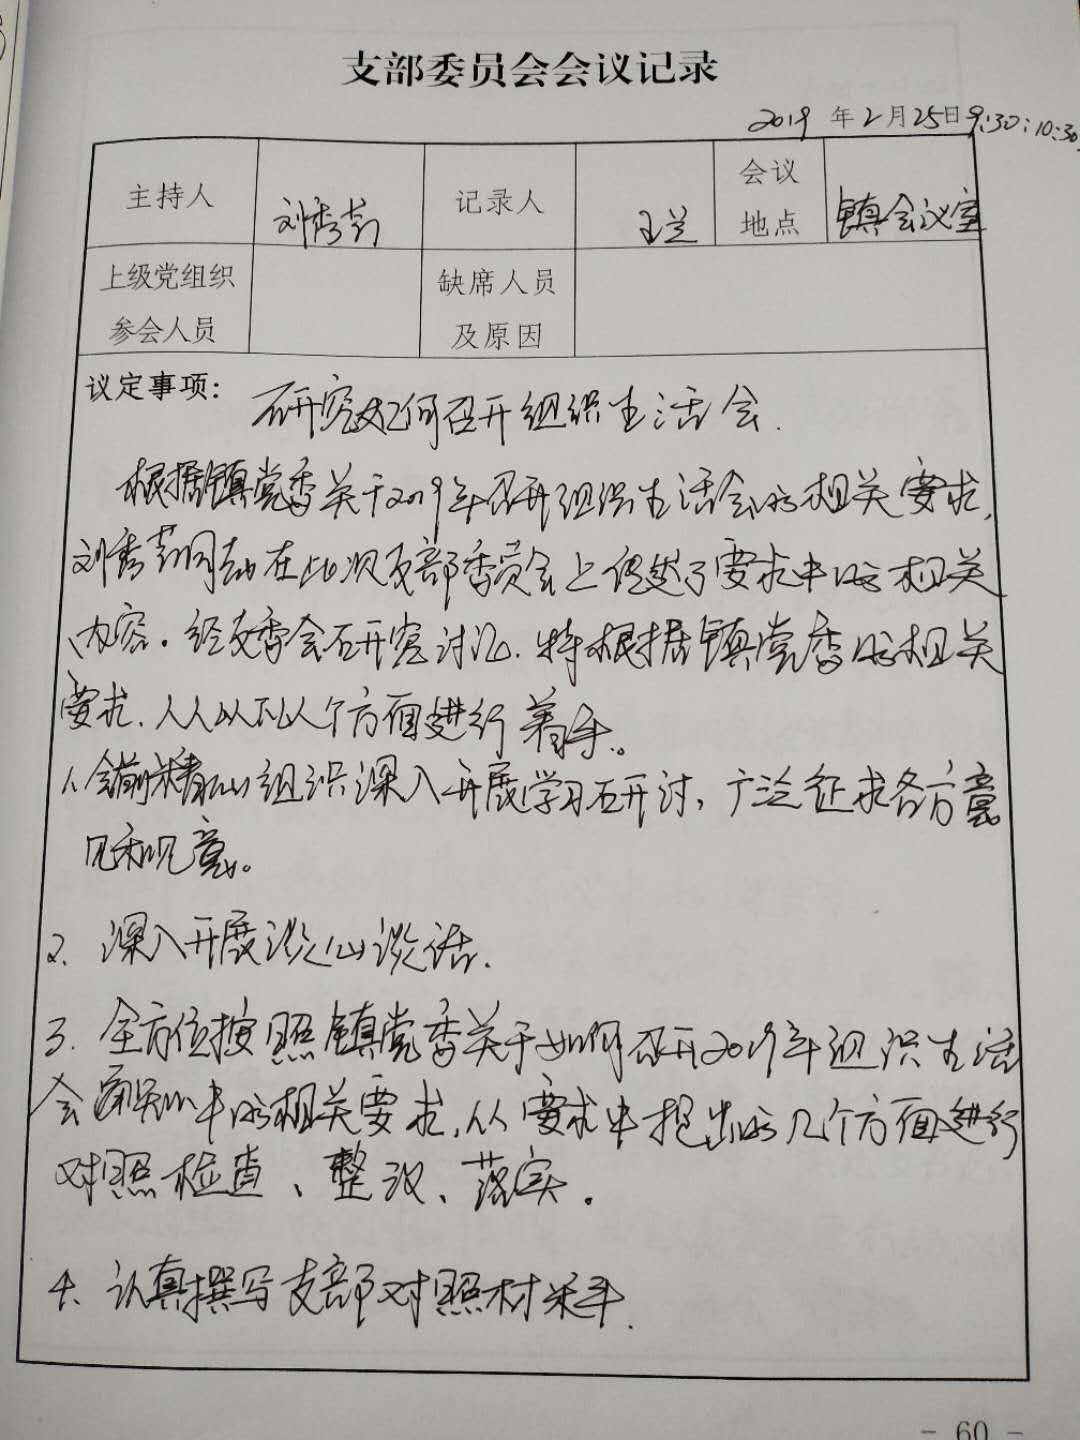 支部委员会会议记录
2019 年 2 月 25 日 9:30:10:30
主持人 刘秀 记录人 王兰 会议地点 镇会议室
上级党组织参会人员 缺席人员及原因
议定事项： 研究如何召开组织生活会.
根据镇党委关于2019年召开组织生活会的相关要求,
刘秀 同志在此次支部委员会上传达了要求中的相关
内容。经支委会研究讨论.特根据镇党委的相关
要求.人人从 个方面进行着手。
1.会前精心组织深入开展学习研讨,广泛征求各方意
见和 意。
2. 深入开展谈心谈话.
3. 全方位按照镇党委关于如何召开2019年组织生活
会 中的相关要求,从要求中提出的几个方面进行
对照检查、整改、落实。
4. 认真撰写支部对照材料.
- 60 -